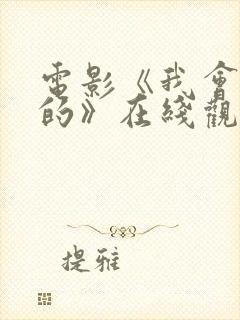 電影《我會
的》在綫觀
提雅